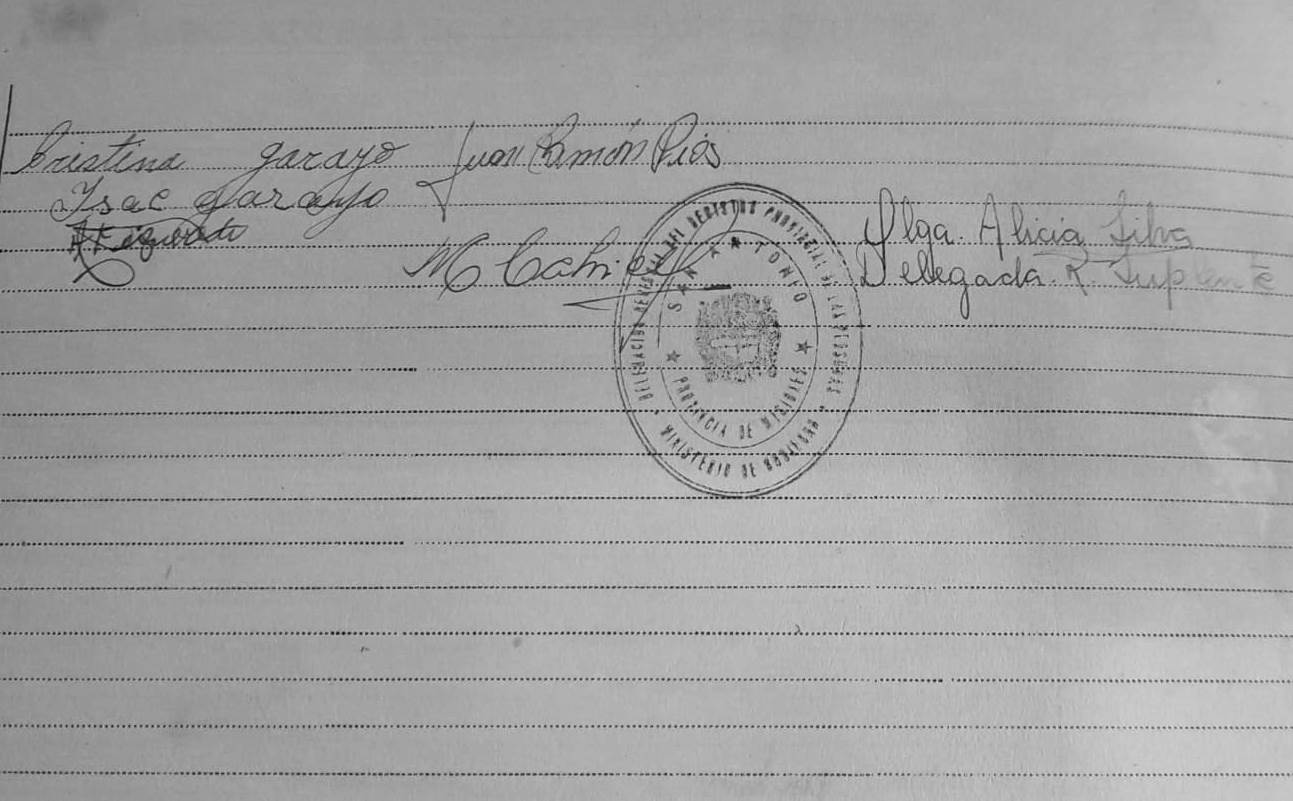 Cristina garayo Juan Ramón Rios
Ysac Garayo
Olga. Alicia Silva
Delegada. R. Suplente
DELEGACION REGISTRAL DEL REGISTRO PROVINCIAL DE LAS PERSONAS
SAN ANTONIO
PROVINCIA DE MISIONES
MINISTERIO DE GOBIERNO